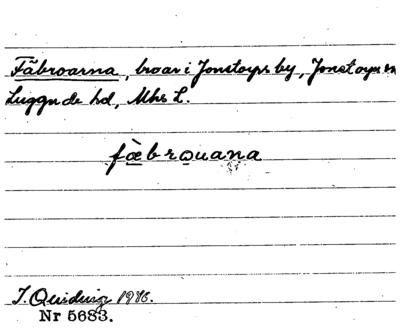 Fäbroarna, broar i Jonstorps by, Jonstorps sn
Luggude hd, Mhs L.
fæ̀brouana
J. Quiding 1916.
Nr 5683.